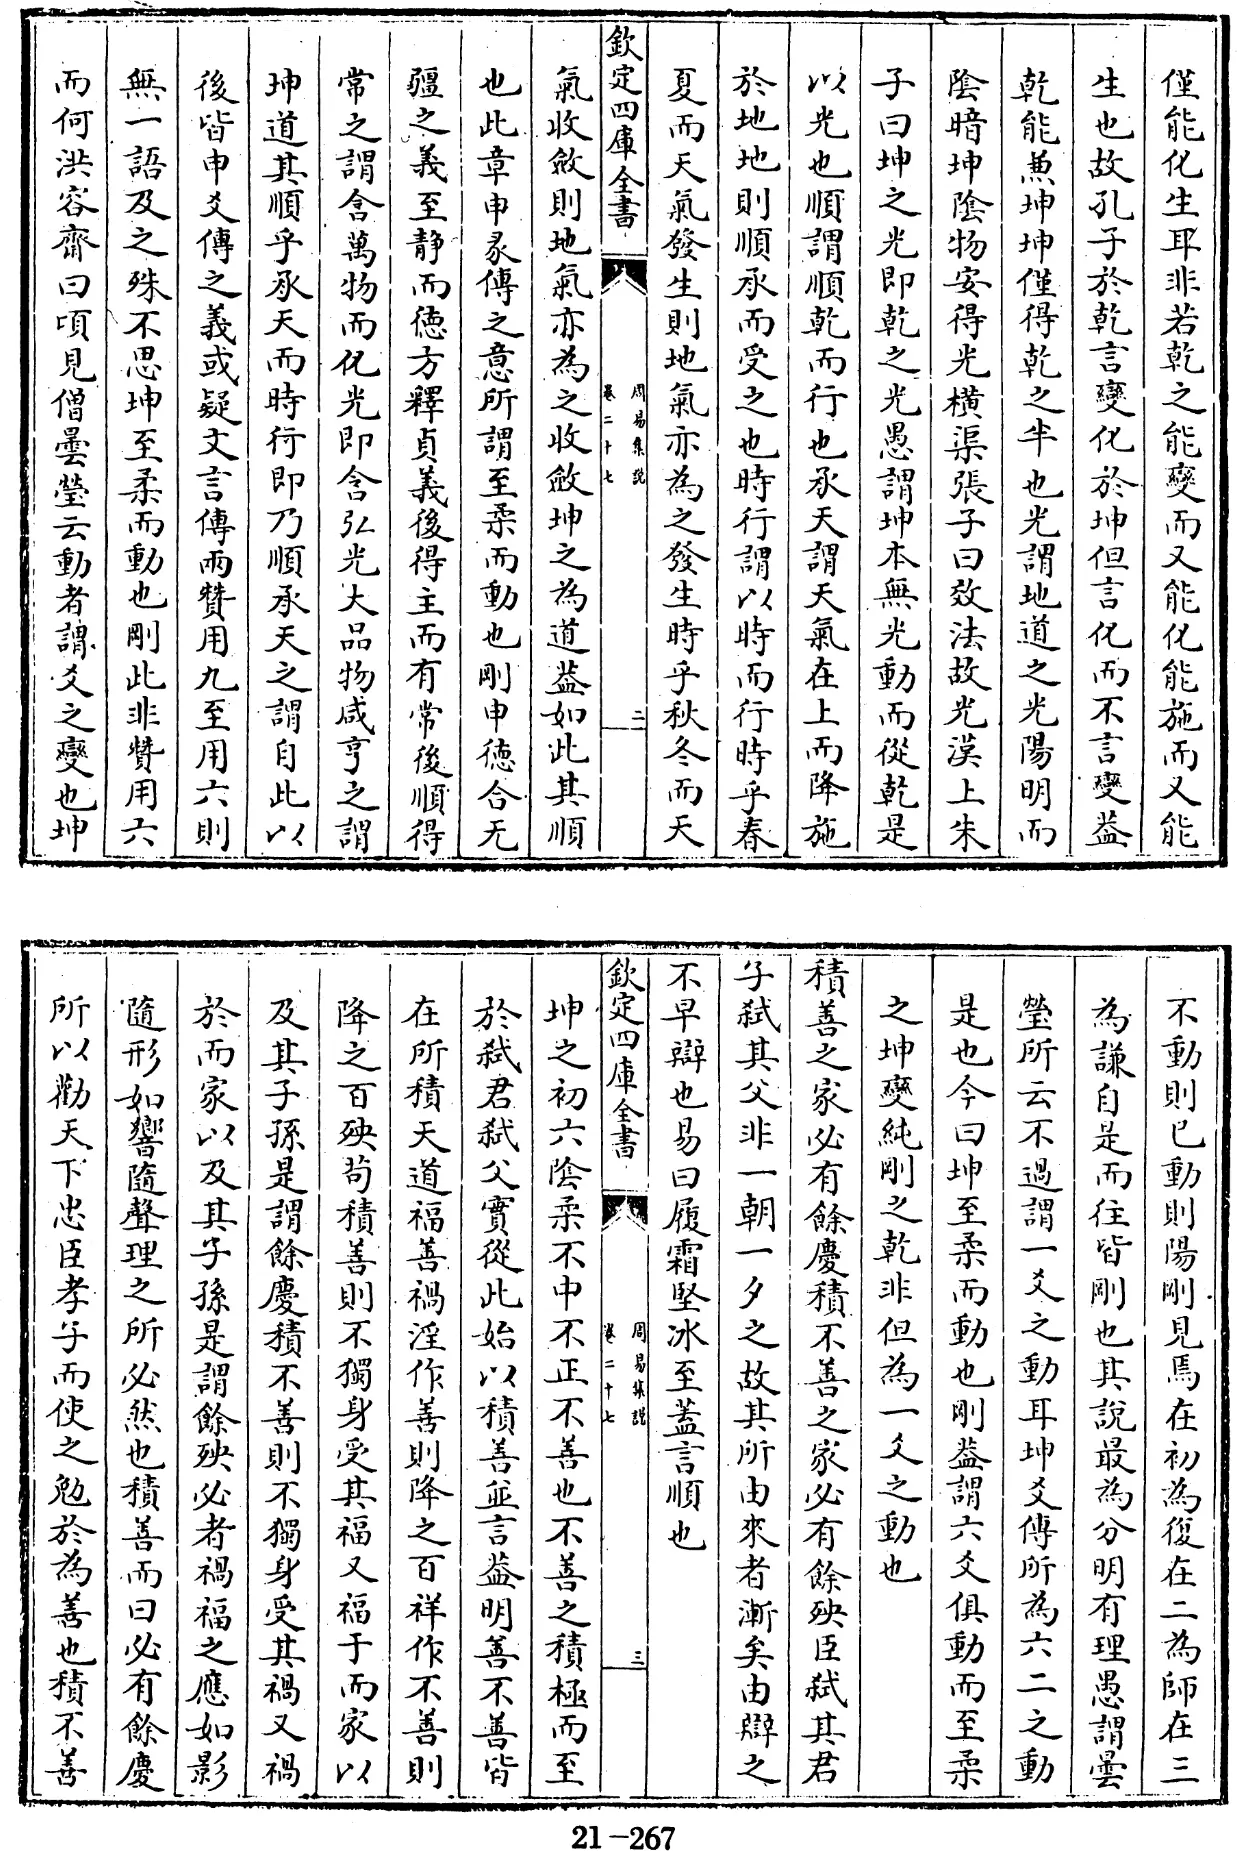 僅能化生耳非若乾之能變而又能化能施而又能
生也故孔子於乾言變化於坤但言化而不言變葢
乾能兼坤坤僅得乾之半也光謂地道之光陽明而
陰暗坤陰物安得光橫渠張子曰效法故光漢上朱
子曰坤之光即乾之光愚謂坤本無光動而從乾是
以光也順謂順乾而行也承天謂天氣在上而降施
於地地則順承而受之也時行謂以時而行時乎春
夏而天氣發生則地氣亦為之發生時乎秋冬而天
欽定四庫全書
周易集說
卷二十七
二
氣收斂則地氣亦為之收斂坤之為道葢如此其順
也此章申彖傳之意所謂至柔而動也剛申德合无
疆之義至靜而德方釋貞義後得主而有常後順得
常之謂含萬物而化光即含弘光大品物咸亨之謂
坤道其順乎承天而時行即乃順承天之謂自此以
後皆申爻傳之義或疑文言傳兩贊用九至用六則
無一語及之殊不思坤至柔而動也剛此非贊用六
而何洪容齋曰頃見僧曇瑩云動者謂爻之變也坤
不動則已動則陽剛見焉在初為復在二為師在三
為謙自是而往皆剛也其說最為分明有理愚謂曇
瑩所云不過謂一爻之動耳坤爻傳所為六二之動
是也今曰坤至柔而動也剛葢謂六爻俱動而至柔
之坤變純剛之乾非但為一爻之動也
積善之家必有餘慶積不善之家必有餘殃臣弒其君
子弒其父非一朝一夕之故其所由來者漸矣由辯之
不早辯也易曰履霜堅冰至蓋言順也
欽定四庫全書
周易集說
卷二十七
三
坤之初六陰柔不中不正不善也不善之積極而至
於弒君弒父實從此始以積善並言葢明善不善皆
在所積天道福善禍淫作善則降之百祥作不善則
降之百殃茍積善則不獨身受其福又福于而家以
及其子孫是謂餘慶積不善則不獨身受其禍又禍
於而家以及其子孫是謂餘殃必者禍福之應如影
隨形如響隨聲理之所必然也積善而曰必有餘慶
所以勸天下忠臣孝子而使之勉於為善也積不善
21-267